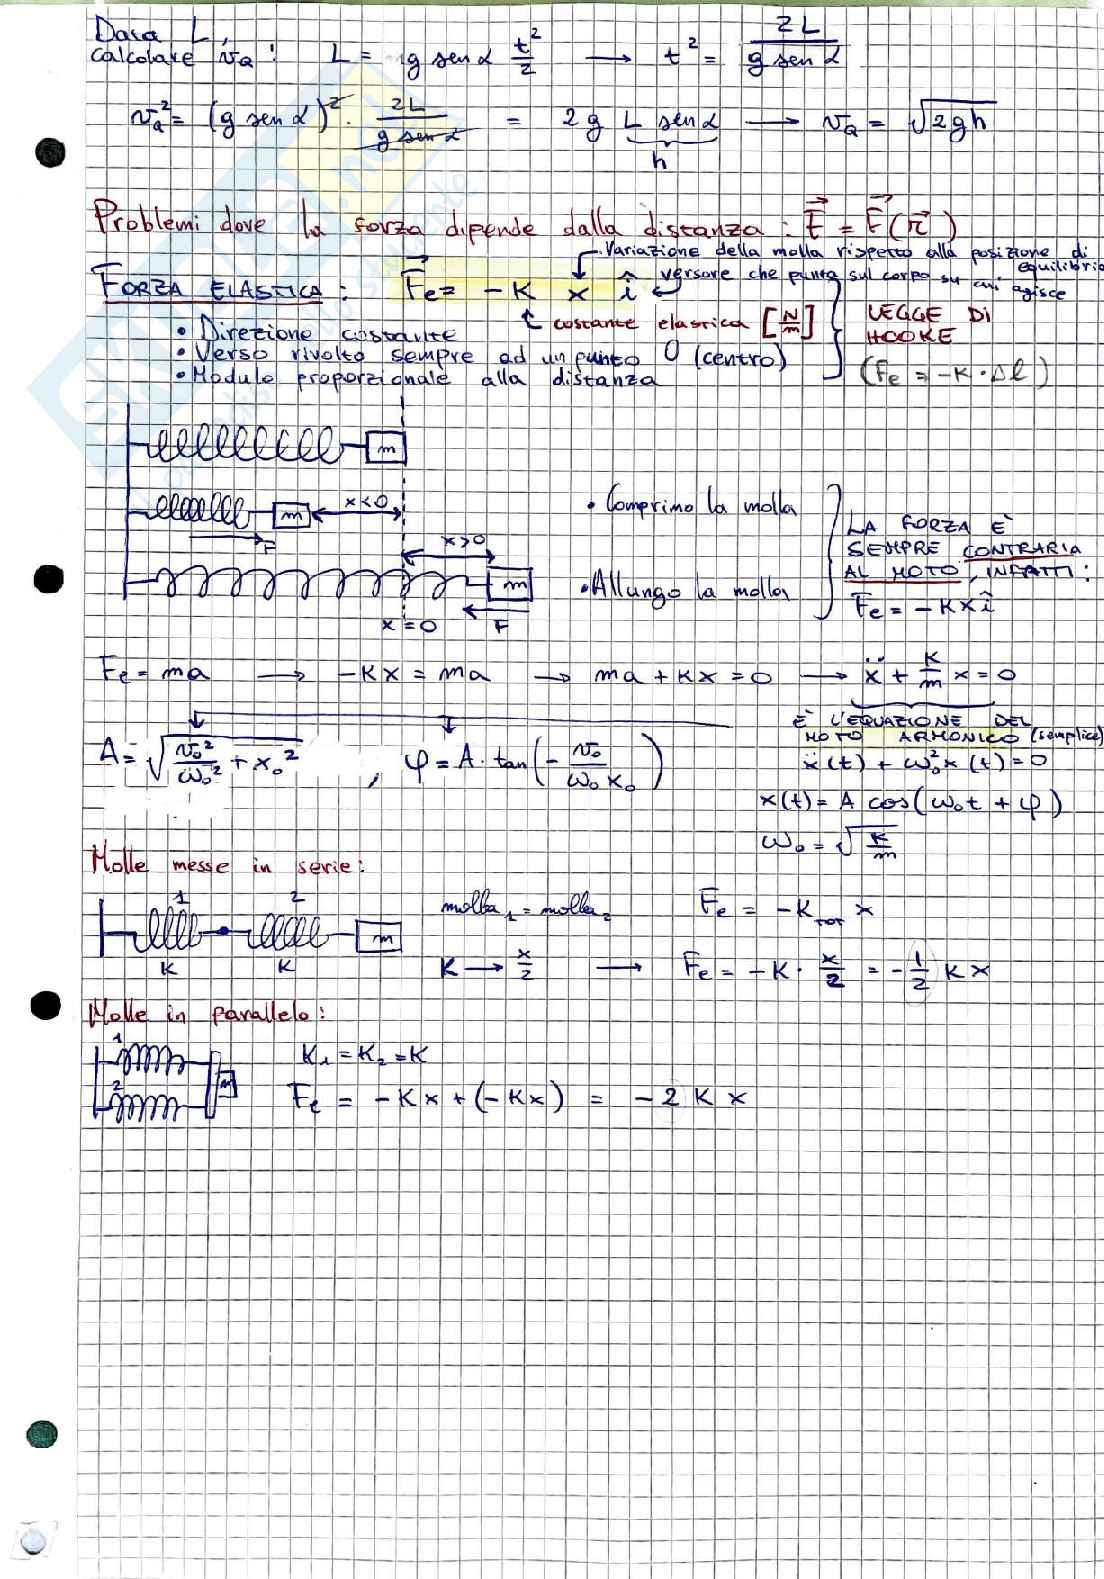 Data L,
calcolare v_a: L = g sen α t²/2 → t² = 2L / g sen α
v_a² = (g sen α)² · 2L / g sen α = 2g L sen α → v_a = √2gh
h
Problemi dove la forza dipende dalla distanza: F = F(r)
Variazione della molla rispetto alla posizione di equilibrio
FORZA ELASTICA: Fe = -K x î versore che punta sul corpo su cui agisce
costante elastica [N/m]
• Direzione costante
• Verso rivolto sempre ad un punto O (centro)
• Modulo proporzionale alla distanza
LEGGE DI
HOOKE
(Fe = -K·Δl)
m
m x<0
F
x>0
m
x=0 F
• Comprimo la molla
• Allungo la molla
LA FORZA È
SEMPRE CONTRARIA
AL MOTO, INFATTI:
Fe = -Kxî
Fe = ma → -Kx = ma → ma + Kx = 0 → ẍ + K/m x = 0
È L'EQUAZIONE DEL
MOTO ARMONICO (semplice)
A = √v₀²/ω₀² + x₀² , φ = A · tan(- v₀/ω₀x₀)
ẍ(t) + ω₀²x(t) = 0
x(t) = A cos(ω₀t + φ)
ω₀ = √K/m
Molle messe in serie:
1 2
m
K K
molla₁ = molla₂ Fe = -K_tot x
K → x/2 → Fe = -K · x/2 = -1/2 K x
Molle in parallelo:
1
2
m
K₁ = K₂ = K
Fe = -Kx + (-Kx) = -2 K x